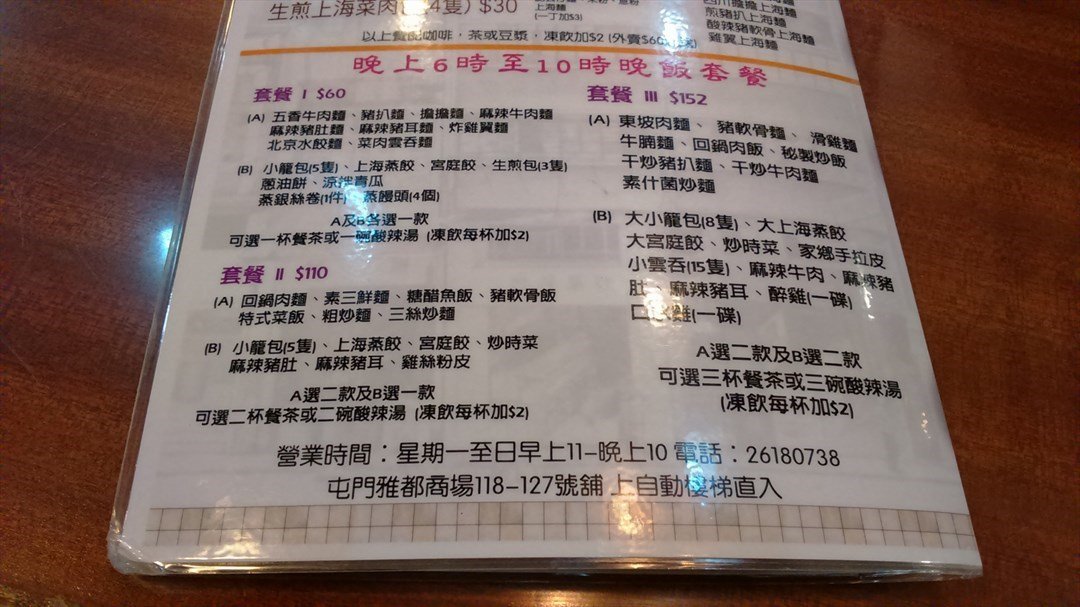 生煎上海菜肉包(4隻) $30
上海麵
(一丁加$3)
四川擔擔上海麵
煎豬扒上海麵
酸辣豬軟骨上海麵
雞翼上海麵
以上餐配咖啡，茶或豆漿，凍飲加$2 (外賣$60
晚上6時至10時晚飯套餐
套餐 I $60
(A) 五香牛肉麵、豬扒麵、擔擔麵、麻辣牛肉麵
麻辣豬肚麵、麻辣豬耳麵、炸雞翼麵
北京水餃麵、菜肉雲吞麵
(B) 小籠包(5隻)、上海蒸餃、宮庭餃、生煎包(3隻)
蔥油餅、涼拌青瓜
蒸銀絲卷(1件)、蒸饅頭(4個)
A及B各選一款
可選一杯餐茶或一碗酸辣湯 (凍飲每杯加$2)
套餐 II $110
(A) 回鍋肉麵、素三鮮麵、糖醋魚飯、豬軟骨飯
特式菜飯、粗炒麵、三絲炒麵
(B) 小籠包(5隻)、上海蒸餃、宮庭餃、炒時菜
麻辣豬肚、麻辣豬耳、雞絲粉皮
A選二款及B選一款
可選二杯餐茶或二碗酸辣湯 (凍飲每杯加$2)
套餐 III $152
(A) 東坡肉麵、豬軟骨麵、滑雞麵
牛腩麵、回鍋肉飯、秘製炒飯
干炒豬扒麵、干炒牛肉麵
素什菌炒麵
(B) 大小籠包(8隻)、大上海蒸餃
大宮庭餃、炒時菜、家鄉手拉皮
小雲吞(15隻)、麻辣牛肉、麻辣豬
肚、麻辣豬耳、醉雞(一碟)
口水雞(一碟)
A選二款及B選二款
可選三杯餐茶或三碗酸辣湯
(凍飲每杯加$2)
營業時間：星期一至日早上11-晚上10 電話：26180738
屯門雅都商場118-127號舖 上自動樓梯直入